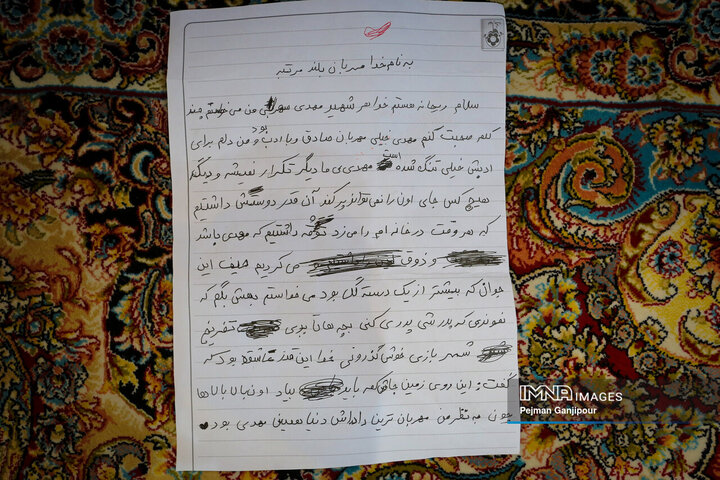 به نام خدا مهربان بلند مرتبه
سلام ریحانه هستم خواهر شهید مهدی من می خواستم چند
کلمه صحبت کنم مهدی خیلی مهربان صادق وبا ادب بود و من دلم برای
ادبش خیلی تنگ شده است مهدی ی ما دیگر تکرار نمیشه و دیگه
هیچ کس جای اون را نمی تواند پر کند آن قدر دوستش داشتیم
که هر وقت در خانه ام را می زد داشتیم که مهدی باشد
و ذوق می کردیم حیف این
جوان که بیشتر از یک دسته گل بود می خواستم بهش بگم که
نموندی که پدر شی پدری کنی بچه هاتا بری تفریح
شهر بازی خوش گذرونی خدا این قدر عاشقط بود که
گفت: این روی زمین باید بیاد اون بالا بالاها
چون به نظر من مهربان ترین داداش دنیا همین مهدی بود
IMNA IMAGES
Pejman Ganjipour